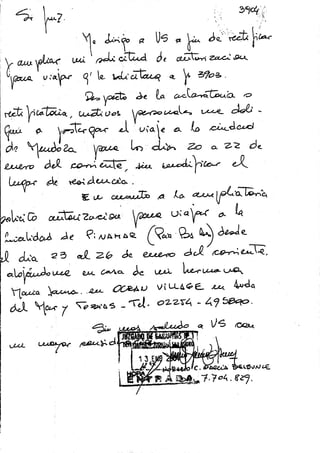 3904
Sr Juez.
Me dirijo a VS a fin de rectificar
y ampliar mi solicitud de autorizacion
para viajar q' le solicitara a fs 3903.
Respecto de la aclaratoria o
rectificatoria, motivos personales me obli-
gan a postergar el viaje a la ciudad
de Mendoza, para los dias 20 a 22 de
enero del corriente, sin modificar el
lugar de residencia.
En cuanto a la ampliatoria
solicito autorizacion para viajar a la
localidad de Pinamar (Pcia Bs As) desde
el dia 23 al 26 de enero del corriente.
alojándome en casa de mi hermana
Maria Juana. en OCEAN VILLAGE en Avda
del Mar y TOBIAS - Tel. 02254 - 495890.
Sin mas saludo a VS con
mi mayor
JUZGADO DE GARANTIAS Nº
13 ENE
HORA
ENTRADA
7.704.829.